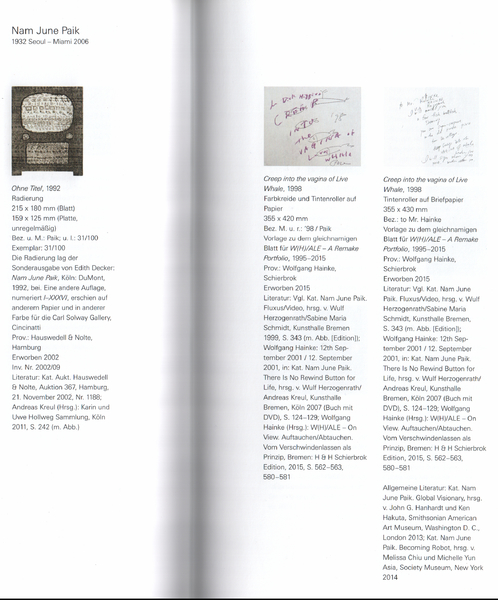 Nam June Paik
1932 Seoul – Miami 2006
Ohne Titel, 1992
Radierung
215 x 180 mm (Blatt)
159 x 125 mm (Platte,
unregelmäßig)
Bez. u. M.: Paik; u. l.: 31/100
Exemplar: 31/100
Die Radierung lag der
Sonderausgabe von Edith Decker:
Nam June Paik, Köln: DuMont,
1992, bei. Eine andere Auflage,
numeriert I–XXXVI, erschien auf
anderem Papier und in anderer
Farbe für die Carl Solway Gallery,
Cincinatti
Prov.: Hauswedell & Nolte,
Hamburg
Erworben 2002
Inv. Nr. 2002/09
Literatur: Kat. Aukt. Hauswedell
& Nolte, Auktion 367, Hamburg,
21. November 2002, Nr. 1188;
Andreas Kreul (Hrsg.): Karin und
Uwe Hollweg Sammlung, Köln
2011, S. 242 (m. Abb.)
Creep into the vagina of Live
Whale, 1998
Farbkreide und Tintenroller auf
Papier
355 x 420 mm
Bez. M. u. r.: '98 / Paik
Vorlage zu dem gleichnamigen
Blatt für W(H)/ALE – A Remake
Portfolio, 1995–2015
Prov.: Wolfgang Hainke,
Schierbrok
Erworben 2015
Literatur: Vgl. Kat. Nam June Paik.
Fluxus/Video, hrsg. v. Wulf
Herzogenrath/Sabine Maria
Schmidt, Kunsthalle Bremen
1999, S. 343 (m. Abb. [Edition]);
Wolfgang Hainke: 12th Sep-
tember 2001 / 12. September
2001, in: Kat. Nam June Paik.
There Is No Rewind Button for
Life, hrsg. v. Wulf Herzogenrath/
Andreas Kreul, Kunsthalle
Bremen, Köln 2007 (Buch mit
DVD), S. 124–129; Wolfgang
Hainke (Hrsg.): W(H)/ALE – On
View. Auftauchen/Abtauchen.
Vom Verschwindenlassen als
Prinzip, Bremen: H & H Schierbrok
Edition, 2015, S. 562–563,
580–581
Creep into the vagina of Live
Whale, 1998
Tintenroller auf Briefpapier
355 x 430 mm
Bez.: to Mr. Hainke
Vorlage zu dem gleichnamigen
Blatt für W(H)/ALE – A Remake
Portfolio, 1995–2015
Prov.: Wolfgang Hainke,
Schierbrok
Erworben 2015
Literatur: Vgl. Kat. Nam June
Paik. Fluxus/Video, hrsg. v. Wulf
Herzogenrath/Sabine Maria
Schmidt, Kunsthalle Bremen,
S. 343 (m. Abb. [Edition]);
Wolfgang Hainke: 12th Sep-
tember 2001 / 12. September
2001, in: Kat. Nam June Paik.
There Is No Rewind Button for
Life, hrsg. v. Wulf Herzogenrath/
Andreas Kreul, Kunsthalle
Bremen, Köln 2007 (Buch mit
DVD), S. 124–129; Wolfgang
Hainke (Hrsg.): W(H)/ALE – On
View. Auftauchen/Abtauchen.
Vom Verschwindenlassen als
Prinzip, Bremen: H & H Schierbrok
Edition, 2015, S. 562–563,
580–581
Allgemeine Literatur: Kat. Nam
June Paik. Global Visionary, hrsg.
v. John G. Hanhardt und Ken
Hakuta, Smithsonian American
Art Museum, Washington D. C.,
London 2013; Kat. Nam June
Paik. Becoming Robot, hrsg. v.
Melissa Chiu und Michelle Yun
Asia, Society Museum, New York
2014